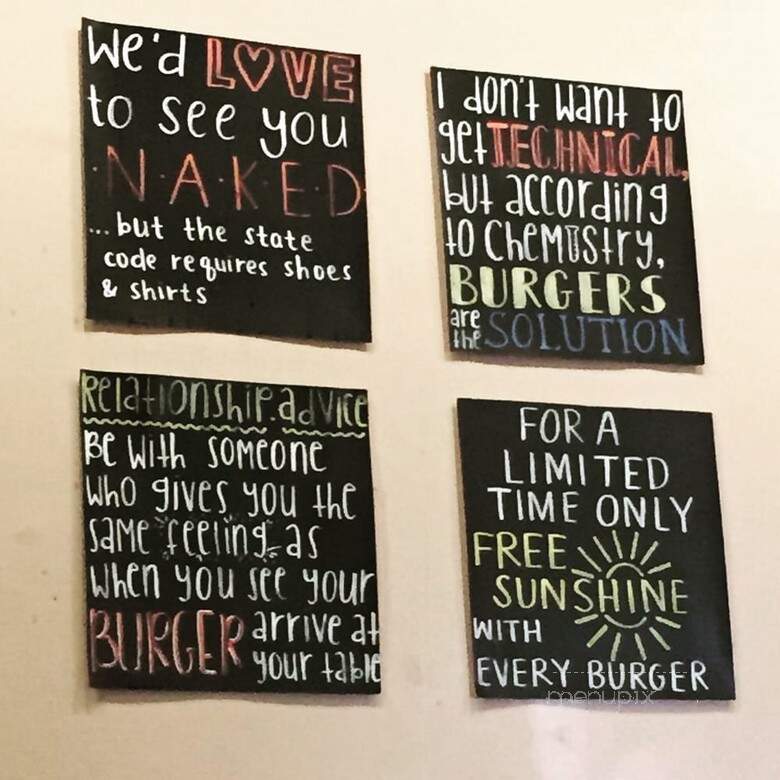 We'd LOVE
to see you
·N·A·K·E·D·
...but the state
code requires shoes
& shirts
I don't want to
get TECHNICAL,
but according
to CheMIStry,
BURGERS
are
the SOLUTION
Relationship advice
Be with someone
who gives you the
same feeling as
when you see your
BURGER arrive at
your table
FOR A
LIMITED
TIME ONLY
FREE
SUNSHINE
WITH
EVERY BURGER
menupix